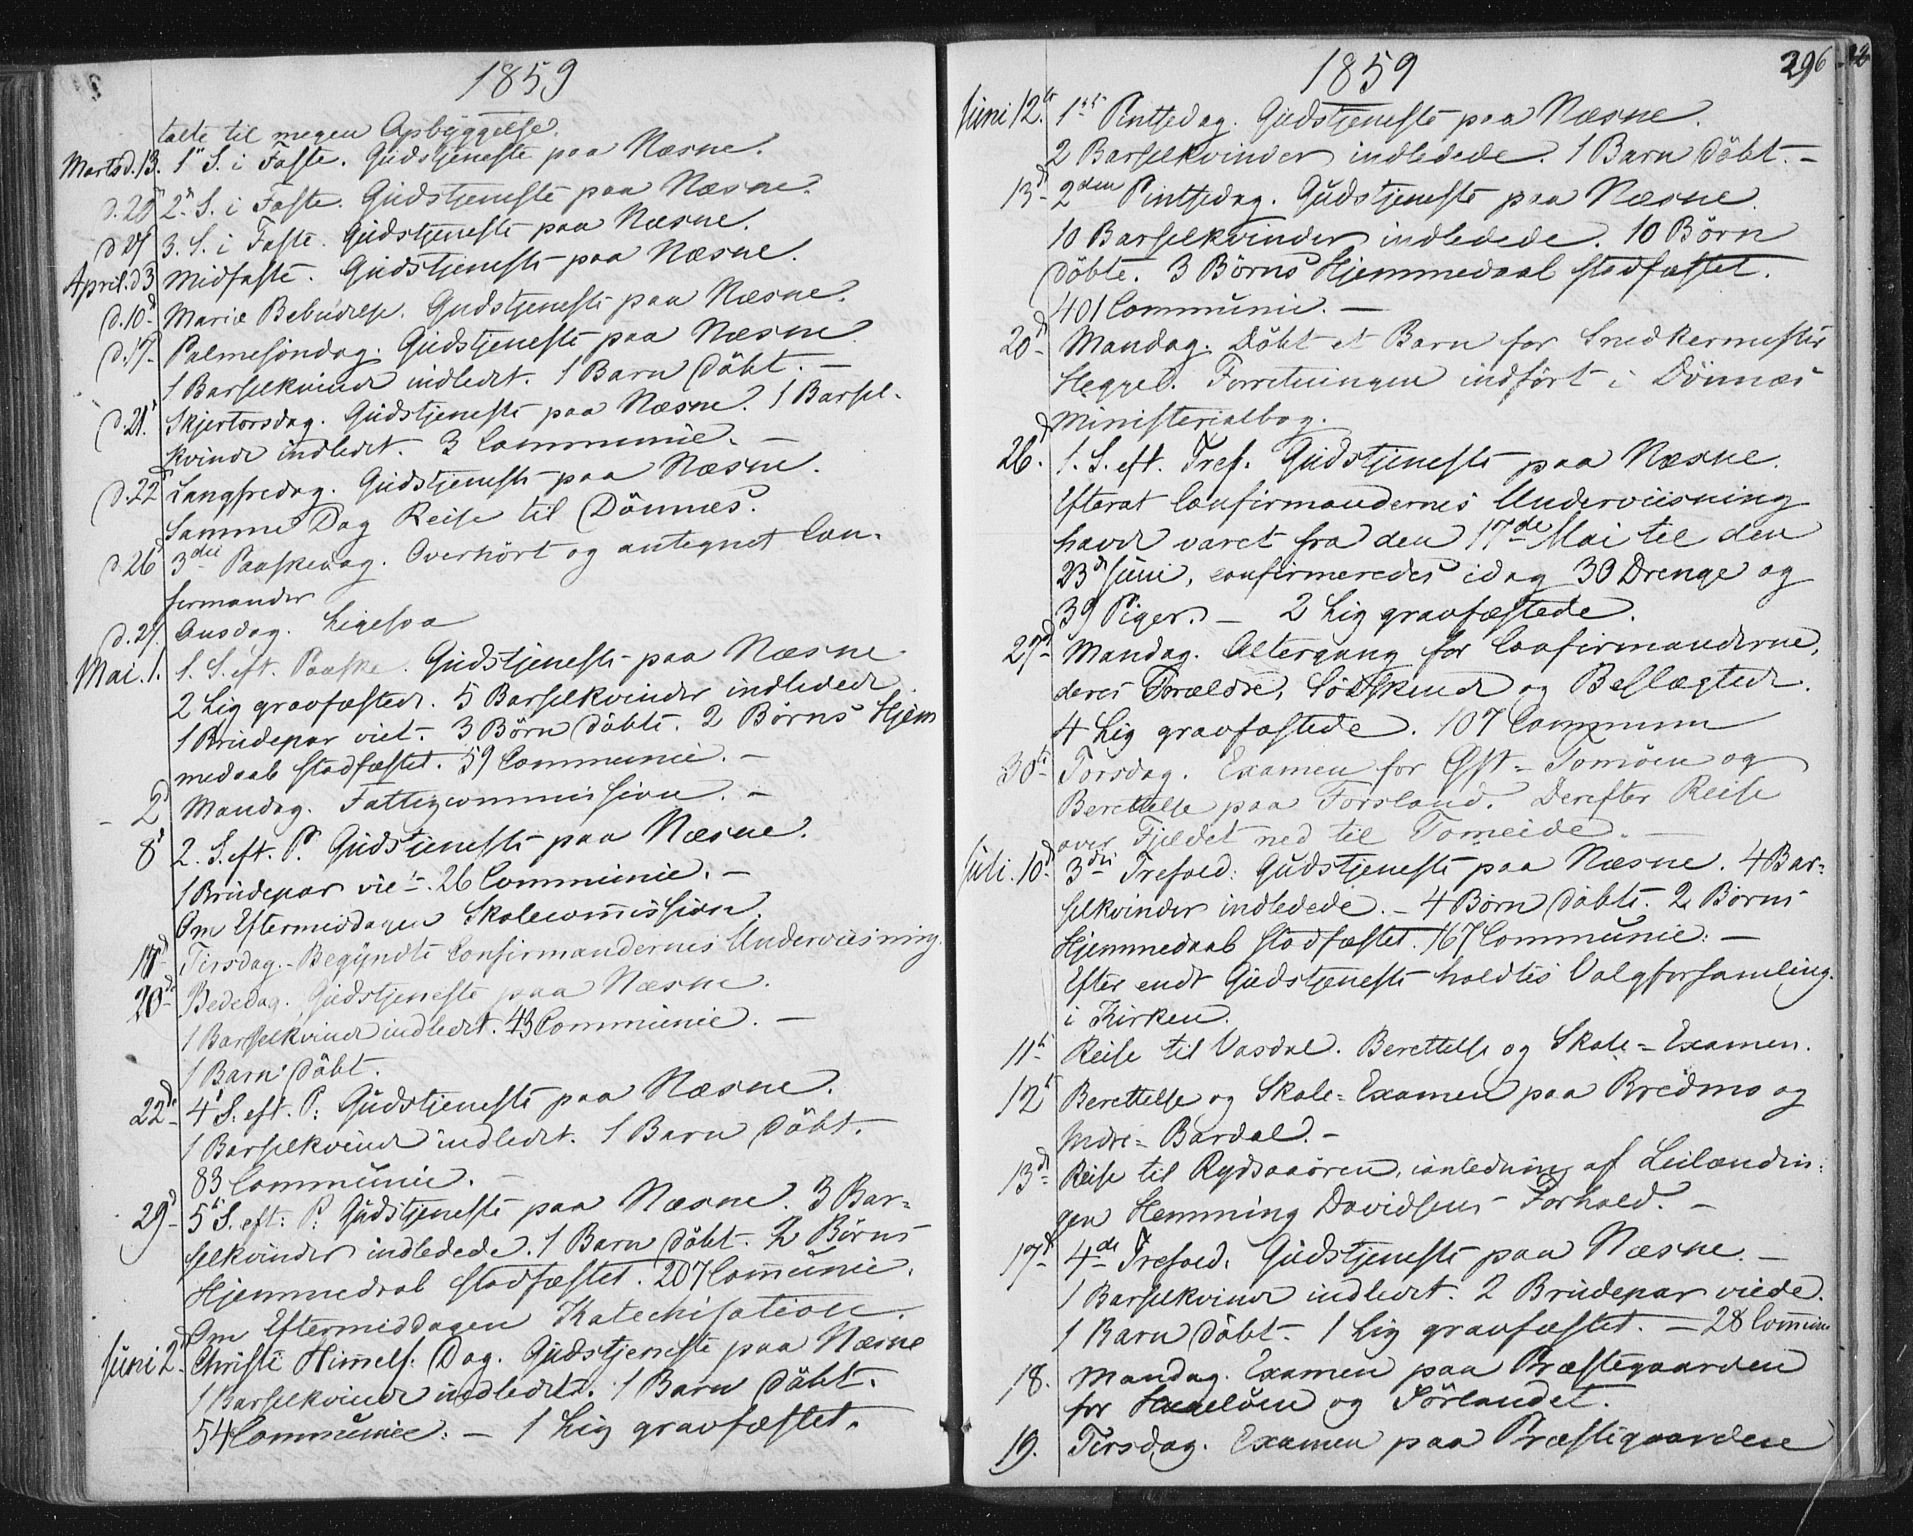 1859
talte til megen Opbyggelse.
Marts d. 13. 1ste S. i Faste. Gudstjeneste paa Næsne.
d. 20 2d S. i Faste. Gudstjeneste paa Næsne.
d. 27 3. S. i Faste. Gudstjeneste paa Næsne.
April. d 3 Midfaste. Gudstjeneste paa Næsne.
d. 10d Mariæ Bebudelse. Gudstjeneste paa Næsne.
d. 17. Palmesöndag. Gudstjeneste paa Næsne
1 Barselkvinde indledet. 1 Barn döbt. –
d. 21. Skjertorsdag. Gudstjeneste paa Næsne. 1 Barsel-
kvinde indledet. 3 Communic. –
d. 22d Langfredag. Gudstjeneste paa Næsne.
Samme Dag Reise til Dönnes.
d. 26 3die Paaskedag. Overhört og antegnet Con-
firmander
d. 27. Onsdag. Ligesaa
Mai. 1. 1. S. eft. Paaske. Gudstjeneste paa Næsne
2 Lig gravfæstede. 5 Barselkvinder indledede
1 Brudepar viet. 3 Börn döbte. 2 Börns Hjem
medaab stadfæstet. 59 Communic. –
– 2d Mandag. Fattigcommission. –
8d 2. S. eft. P. Gudstjeneste paa Næsne.
1 Brudepar viet. 26 Communic. –
Om Eftermiddagen Skolecommission.
17d Tirsdag. – Begyndte Confirmandernes Underviisning.
20d Bededag. Gudstjeneste paa Næsne.
1 Barselkvinde indledet. 43 Communic. –
1 Barn döbt.
22d 4d S. eft. P: Gudstjeneste paa Næsne.
1 Barselkvinde indledet. 1 Barn döbt.
83 Communic. –
29d 5t S. eft: P: Gudstjeneste paa Næsne. 3 Bar-
selkvinder indledede. 1 Barn döbt. 2 Börns
Hjemmedaab stadfæstet. 207 Communic.
Om Eftermiddagen Katechisation.
Juni 2d Christi Himmelf: Dag. Gudstjeneste paa Næsne
1 Barselkvinde indledet. 1 Barn döbt.
54 Communic: – 1 Lig gravfæstet.
1859
296
Juni 12te 1ste Pintsedag. Gudstjeneste paa Næsne.
2 Barselkvinder indledede. 1 Barn döbt. –
13d 2den Pintsedag. Gudstjeneste paa Næsne.
10 Barselkvinder indledede. 10 Börn
döbte. 3 Börns Hjemmedaab stadfæstet.
401 Communic. –
20d Mandag. Döbt et Barn for Snedkermester
Heggel. Forretningen indfört i Dönnæs
Ministerialbog.
26d. 1. S. eft. Tref. Gudstjeneste paa Næsne.
Efterat Confirmandernes Underviisning
havde varet fra den 17de Mai til den
23d Juni, confirmeredes idag 30 Drenge og
39 Piger. – 2 Lig gravfæstede.
27d Mandag. Altergang for Confirmanderne,
deres Forældre, Södskende og Beslægtede.
4 Lig gravfæstede. 107 Commun
30te Torsdag. Examen for Öst-Tomöen og
Berettelse paa Forsland. Derefter Reise
over Fjeldet ned til Tomeide. –
Juli. 10d 3die Trefold: Gudstjeneste paa Næsne. 4 Bar-
selkvinder indledede. – 4 Börn döbte. 2 Börns
Hjemmedaab stadfæstet. 167 Communic: –
Efter endt Gudstjeneste holdtes Valgforsamling
i Kirken.
11te Reise til Vasdal. Berettelse og Skole-Examen.
12te Berettelse og Skole-Examen paa Bredmo og
Indre-Bardal. –
13d Reise til Rydsaaören, ianledning af Leilændin-
gen Hemming Davidsens Forhold. –
17d 4de Trefold. Gudstjeneste paa Næsne. –
1 Barselkvinde indledet. 2 Brudepar viede.
1 Barn döbt – 1 Lig gravfæstet. – 28 Commun
18. Mandag. Examen paa Præstegaarden
for Hugelöen og Sörlandet.
19. Tirsdag. Examen paa Præstegaarden